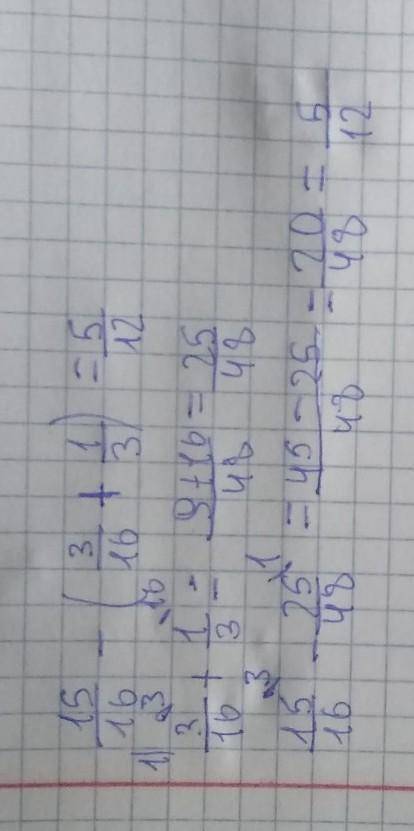 15/16 - (3/16 + 1/3) = 5/12
1) 3/16 ³ + 1/3 ¹⁶ = 9+16/48 = 25/48
15/16 ³ - 25/48 ¹ = 45-25/48 = 20/48 = 5/12